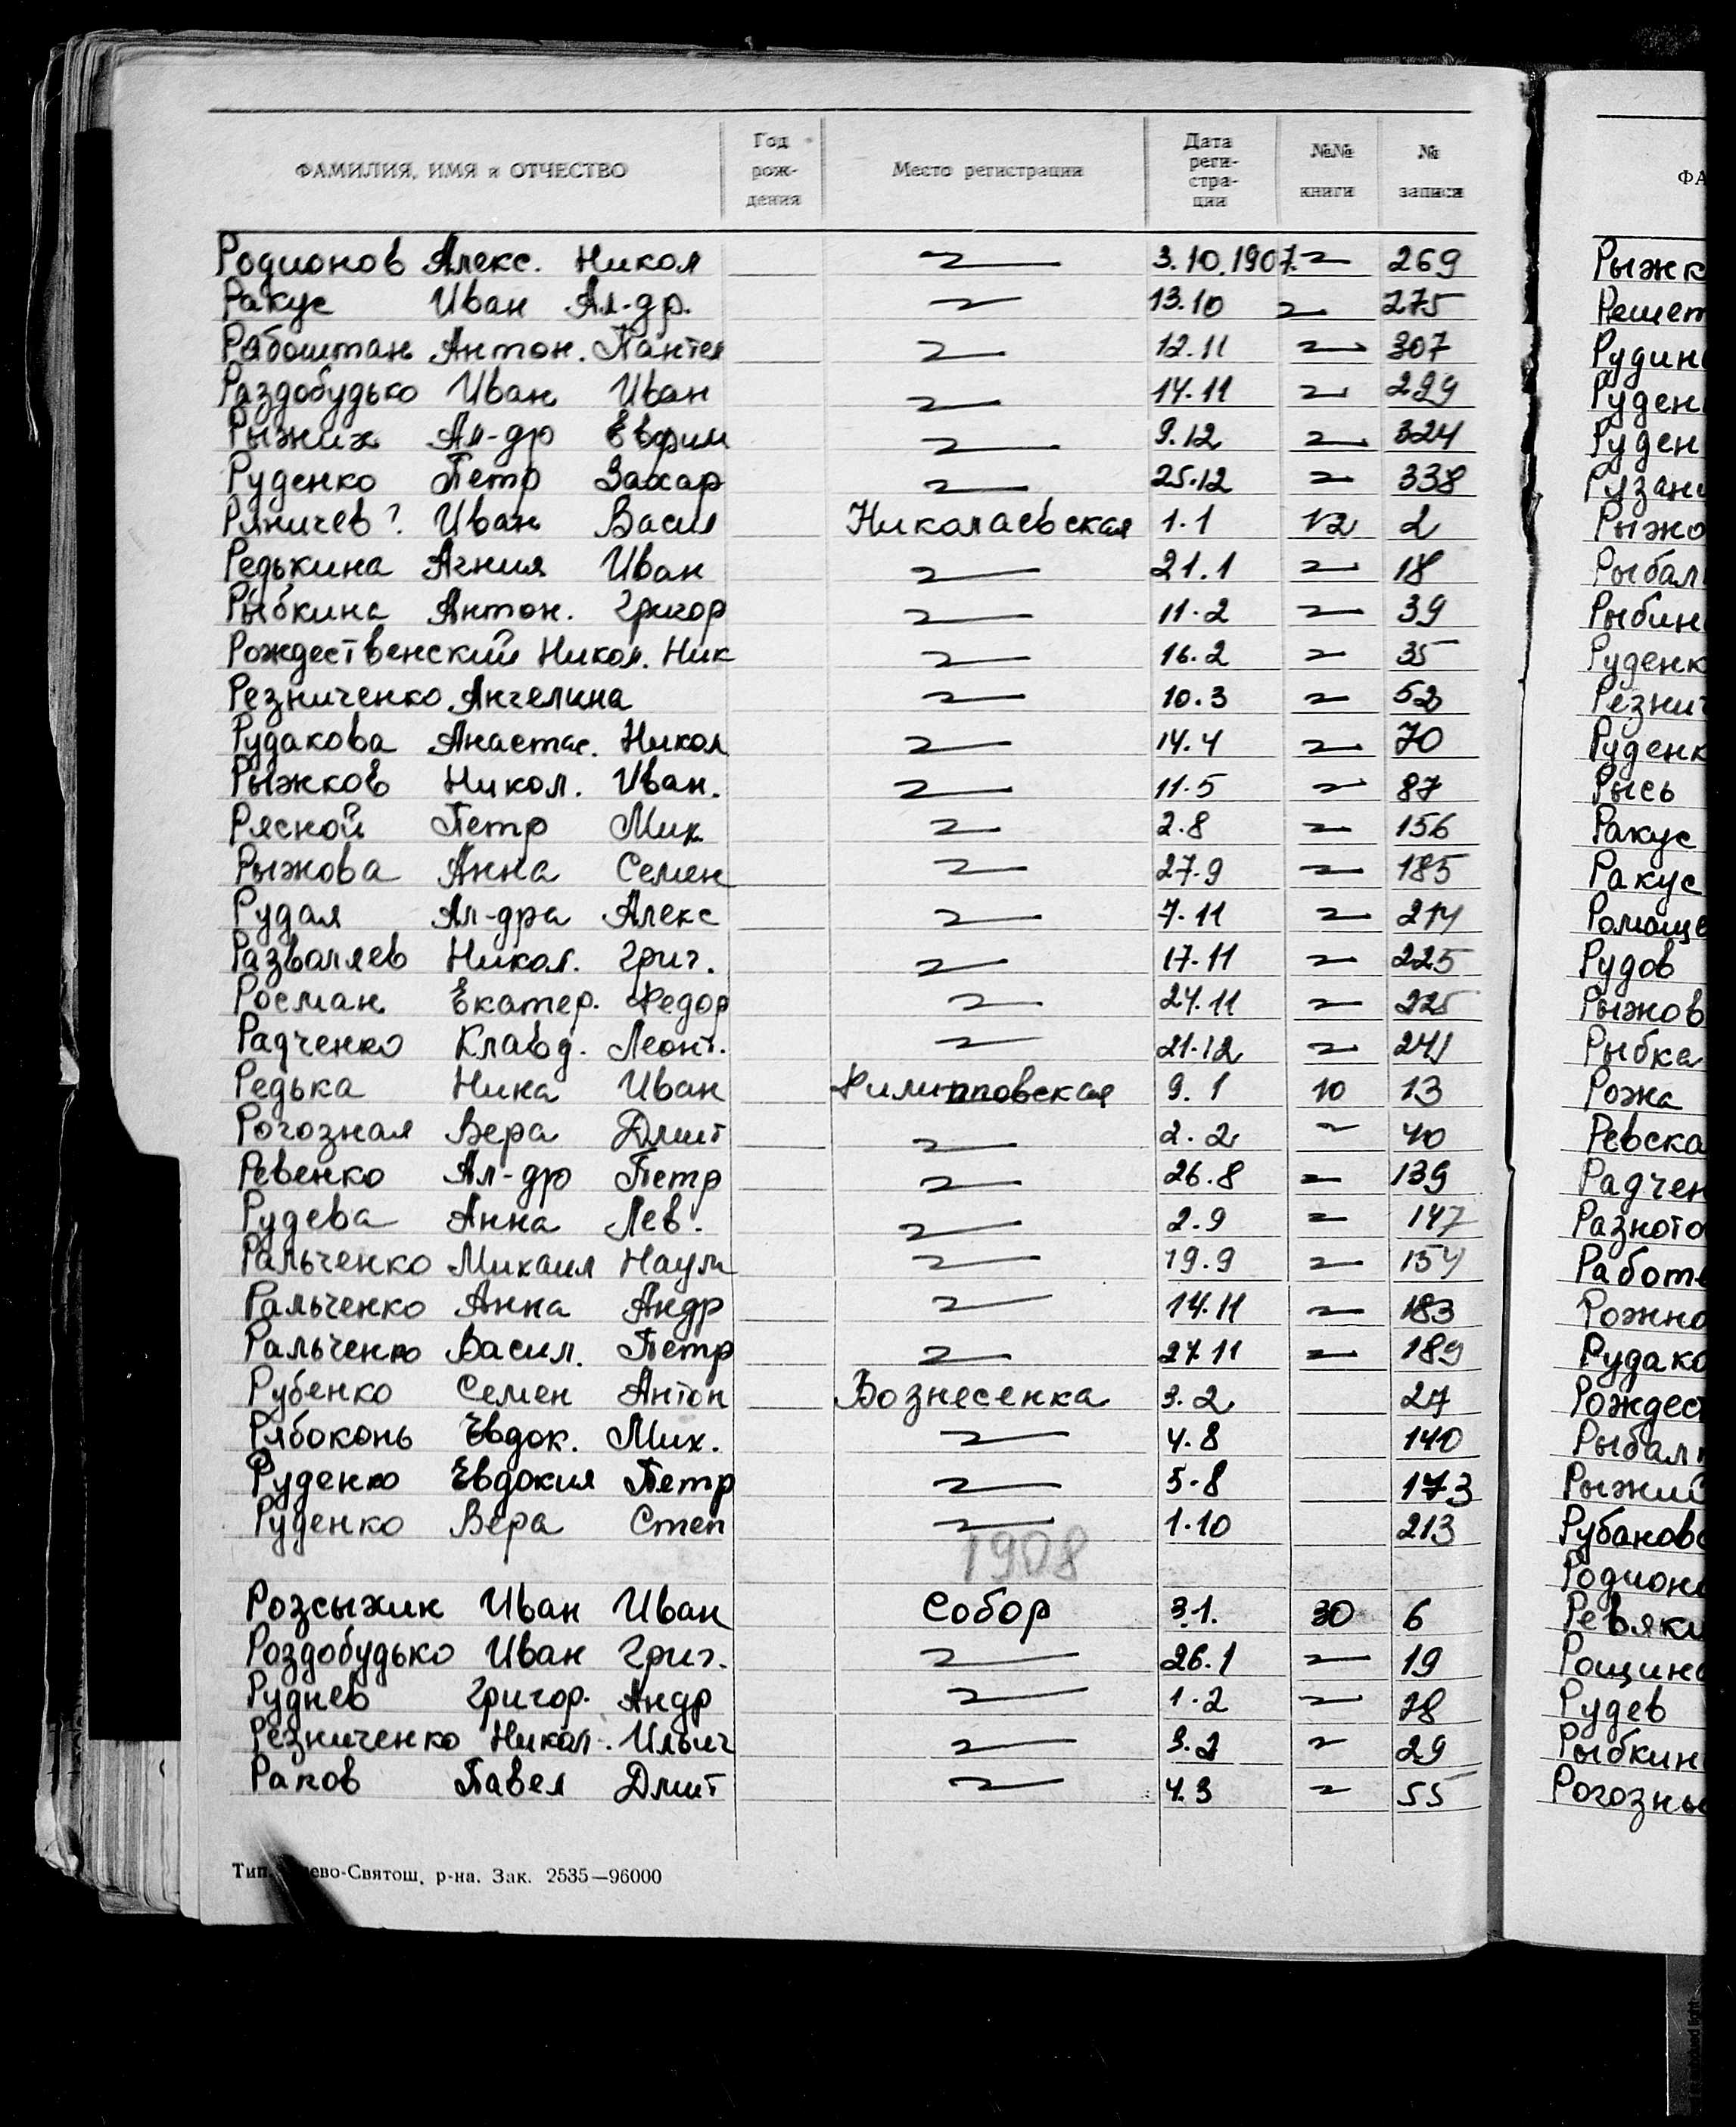 ФАМИЛИЯ, ИМЯ и ОТЧЕСТВО Год рож- дения Место регистрации Дата реги- стра- ции №№ книги № записи
Родионов Алекс. Никол 〃 3.10.1907. 〃 269
Ракус Иван Ал-др. 〃 13.10 〃 275
Рябоштан Антон. Пантел 〃 12.11 〃 307
Раздобудько Иван Иван 〃 14.11 〃 299
Рыжих Ал-др Ефим 〃 9.12 〃 324
Руденко Петр Захар 〃 25.12 〃 338
Ряничев? Иван Васил Николаевская 1.1 12 2
Редькина Агния Иван 〃 21.1 〃 18
Рыбкина Антон. Григор 〃 11.2 〃 39
Рождественский Никол. Ник 〃 16.2 〃 35
Резниченко Ангелина 〃 10.3 〃 52
Рудакова Анастас. Никол 〃 14.4 〃 70
Рыжков Никол. Иван. 〃 11.5 〃 87
Рясной Петр Мих 〃 2.8 〃 156
Рыжова Анна Семен 〃 27.9 〃 185
Рудая Ал-дра Алекс 〃 7.11 〃 214
Разваляев Никол. Григ. 〃 17.11 〃 225
Росман Екатер. Федор 〃 24.11 〃 225
Радченко Клавд. Леонт. 〃 21.12 〃 241
Редька Нина Иван Филипповская 9.1 10 13
Рогозная Вера Дмит 〃 2.2 〃 40
Ревенко Ал-др Петр 〃 26.8 〃 139
Рудева Анна Лев. 〃 2.9 〃 147
Ральченко Михаил Наум 〃 19.9 〃 154
Ральченко Анна Андр 〃 14.11 〃 183
Ральченко Васил. Петр 〃 27.11 〃 189
Рубенко Семен Антон Вознесенка 3.2 27
Рябоконь Евдок. Мих. 〃 4.8 140
Руденко Евдокия Петр 〃 5.8 173
Руденко Вера Степ 〃 1.10 213
1908
Розсыхин Иван Иван Собор 3.1. 30 6
Роздобудько Иван Григ. 〃 26.1 〃 19
Руднев Григор. Андр 〃 1.2 〃 28
Резниченко Никол. Ильич 〃 3.2 〃 29
Раков Павел Дмит 〃 4.3 〃 55
Тип. ево-Святош, р-на. Зак. 2535—96000
ФА
Рыжк
Решет
Рудин
Руден
Руден
Рязан
Рыжо
Рыбал
Рыбин
Руденк
Резнич
Руденк
Рысь
Ракус
Ракус
Ромаще
Рудов
Рыжов
Рыбка
Рожа
Ревска
Радчен
Разното
Работ
Рожно
Рудако
Рождест
Рыбал
Рыжий
Рубанов
Родион
Ревяки
Рощин
Рудев
Рыбкин
Рогозны